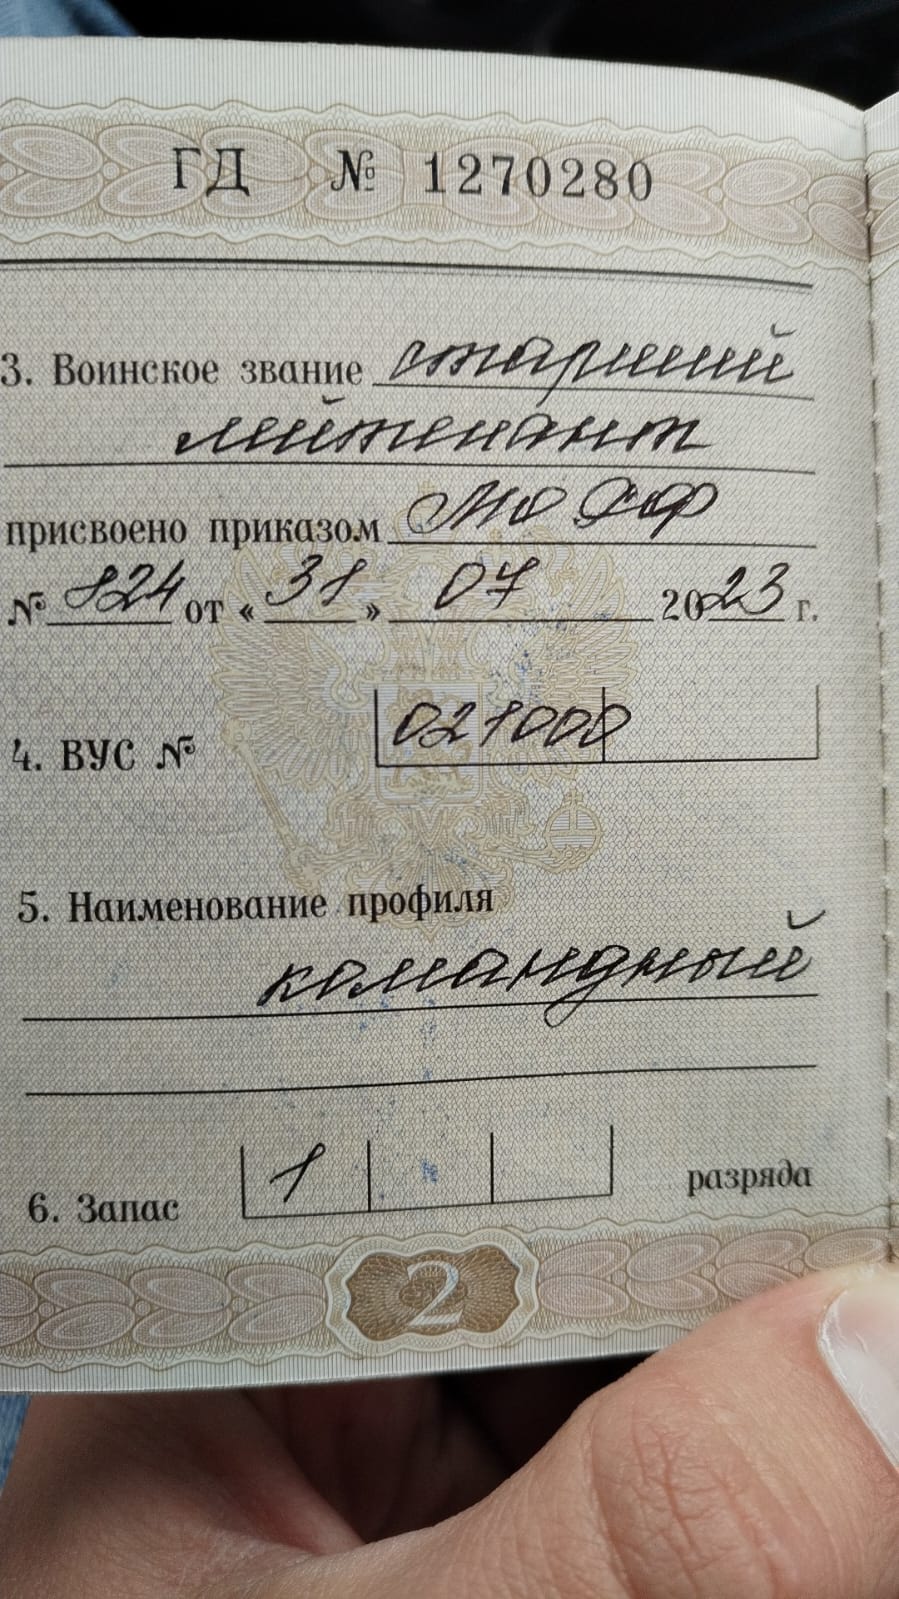 ГД № 1270280
3. Воинское звание старший
лейтенант
присвоено приказом МО РФ
№ 824 от « 31 » 07 2023 г.
4. ВУС № 021000
5. Наименование профиля
командный
6. Запас 1 разряда
2